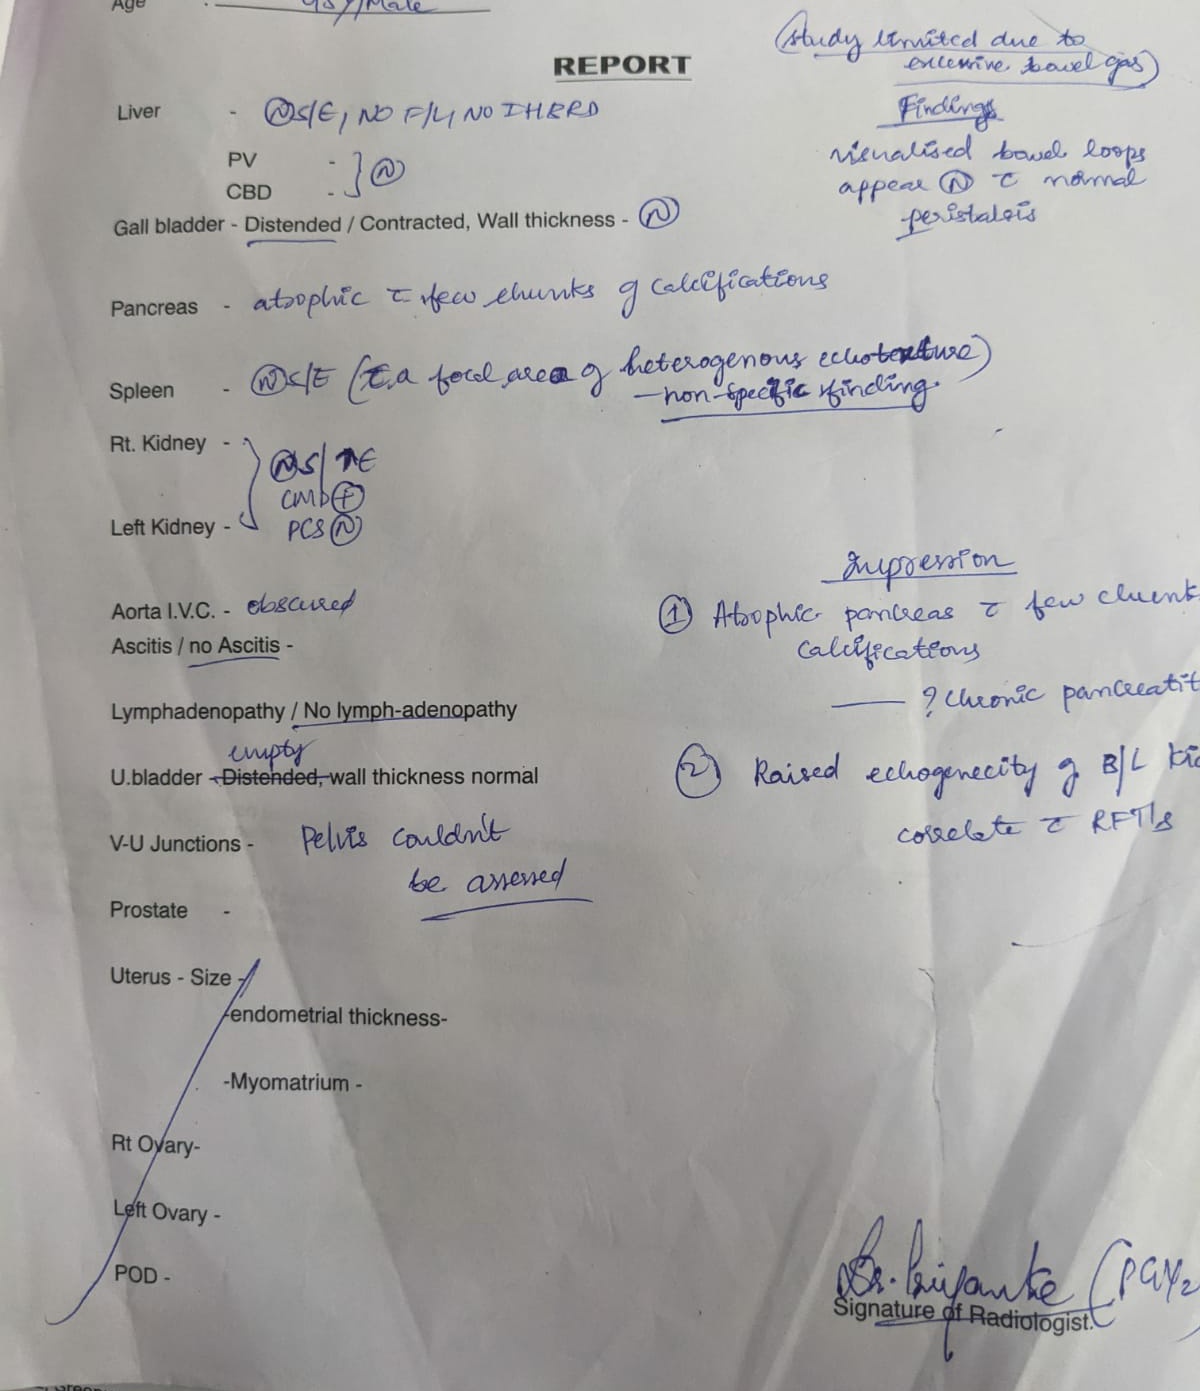 Age - 45y/Male
(Study limited due to
excessive bowel gas)
REPORT
Liver - Ⓝ S/E, NO F/L, NO IHBRD
Findings
visualised bowel loops
appear Ⓝ c̄ normal
peristalsis
PV - } Ⓝ
CBD -
Gall bladder - Distended / Contracted, Wall thickness - Ⓝ
Pancreas - atrophic c̄ few chunks of calcifications
Spleen - Ⓝ S/E (c̄ a focal area of heterogenous echotexture)
— non-specific finding.
Rt. Kidney -
Ⓝ S/↑E
CMD ⊕
Left Kidney - PCS Ⓝ
Impression
Aorta I.V.C. - obscured
① Atrophic pancreas c̄ few chunk
calcifications
Ascitis / no Ascitis -
— ? Chronic pancreatit
Lymphadenopathy / No lymph-adenopathy
empty
U.bladder - Distended, wall thickness normal
② Raised echogenecity of B/L Kid
correlate c̄ RFT's
V-U Junctions - Pelvis couldn't
be assessed
Prostate -
Uterus - Size -
-endometrial thickness-
-Myomatrium -
Rt Ovary-
Left Ovary -
POD -
Dr. Priyanka (PGY2
Signature of Radiologist.